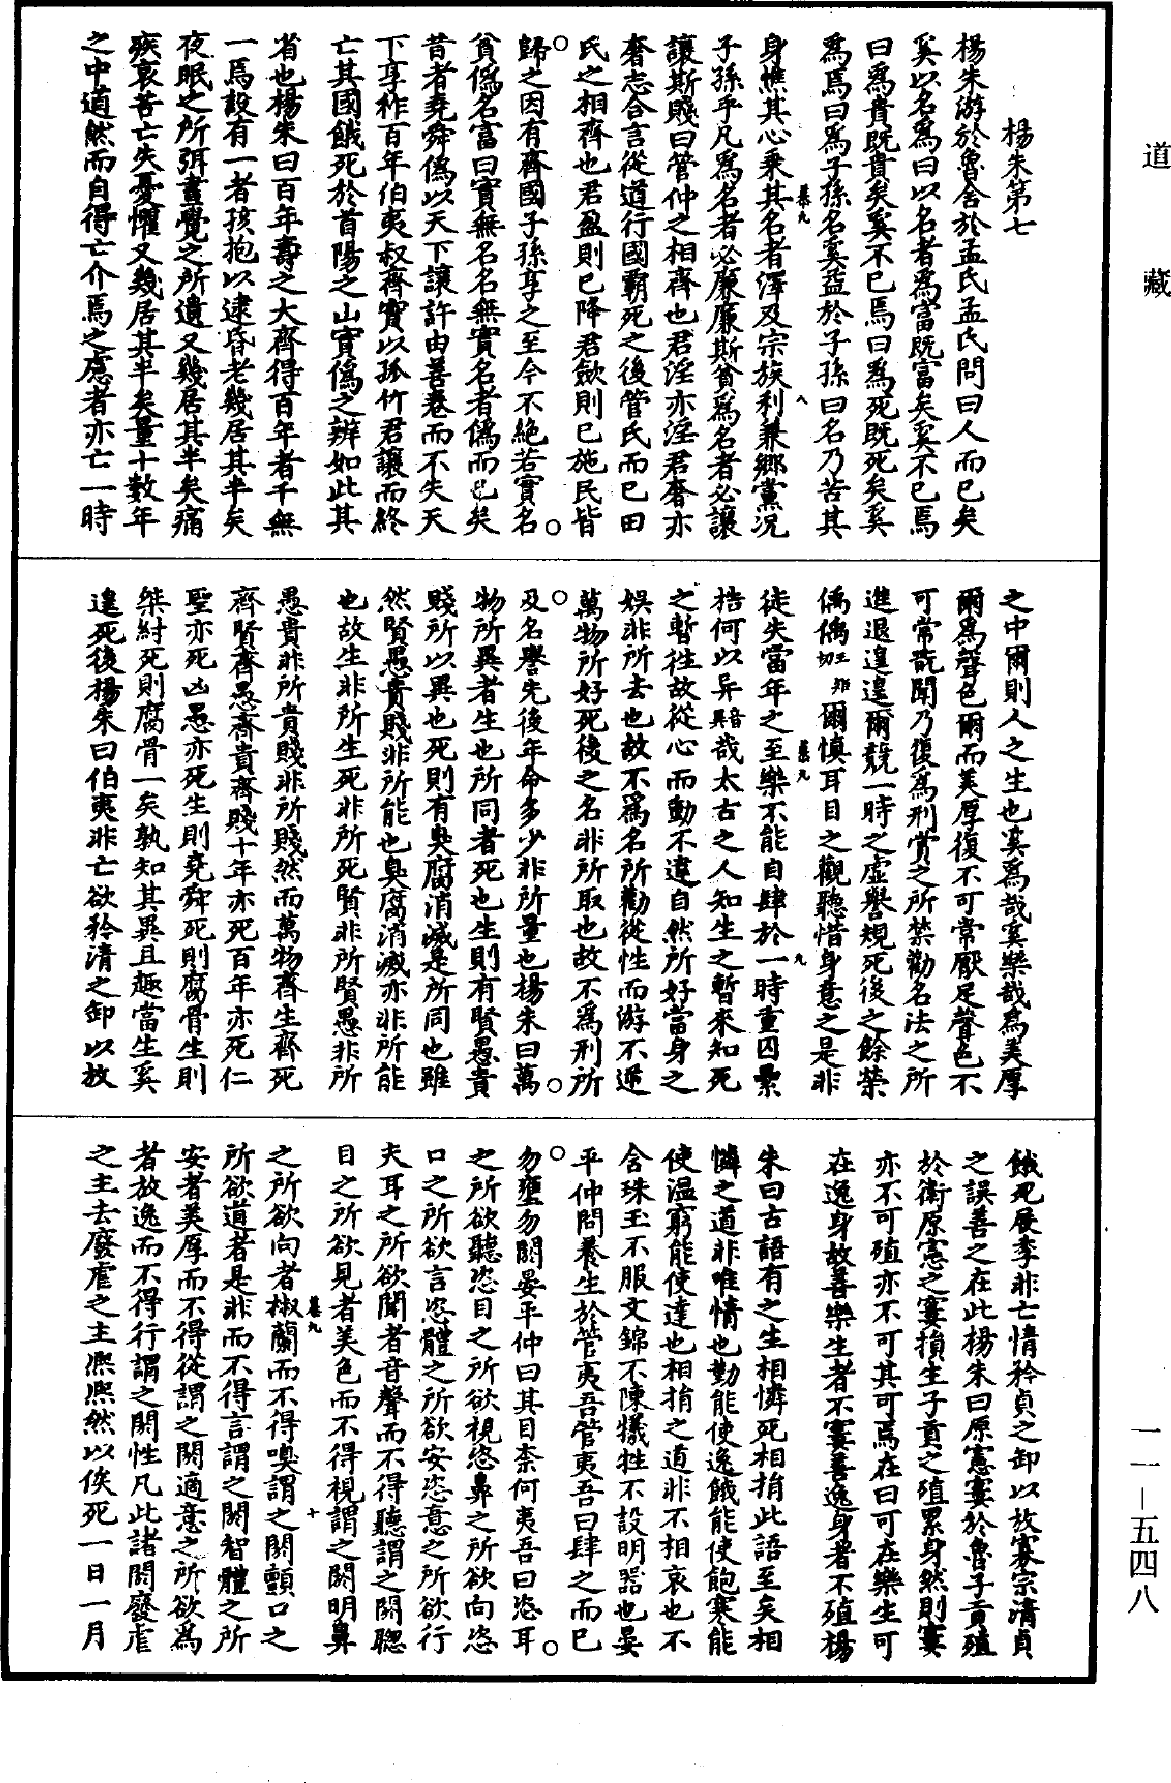 道藏
楊朱第七
楊朱游於魯舍於孟氏孟氏問曰人而已矣
奚以名爲曰以名者爲富既富矣奚不已焉
曰爲貴既貴矣奚不已焉曰爲死既死矣奚
爲焉曰爲子孫名奚益於子孫曰名乃苦其
慕九 八
身憔其心乗其名者澤及宗族利兼鄉黨况
子孫乎凡爲名者必廉廉斯貧爲名者必讓
讓斯賤曰管仲之相齊也君淫亦淫君奢亦
奢志合言從道行國霸死之後管氏而已田
氏之相齊也君盈則已降君歛則已施民皆
○歸之因有齊國子孫享之至今不絕若實名○
貧僞名富曰實無名名無實名者僞而已矣
昔者堯舜僞以天下讓許由善卷而不失天
下享祚百年伯夷叔齊實以孤竹君讓而終
亡其國餓死於首陽之山實僞之辨如此其
省也楊朱曰百年壽之大齊得百年者千無
一焉設有一者孩抱以逮昏老幾居其半矣
夜眠之所弭晝覺之所遺又幾居其半矣痛
疾哀苦亡失憂懼又幾居其半矣量十數年
之中逌然而自得亡介焉之慮者亦亡一時
之中爾則人之生也奚爲哉奚樂哉爲美厚
爾爲聲色爾而美厚復不可常厭足聲色不
可常翫聞乃復爲刑賞之所禁勸名法之所
進退遑遑爾競一時之虛譽規死後之餘榮
偊偊王矩切爾慎耳目之觀聽惜身意之是非
慕九 九
徒失當年之至樂不能自肆於一時重囚纍
梏何以异音異哉太古之人知生之暫來知死
之暫往故從心而動不違自然所好當身之
娛非所去也故不爲名所勸從性而游不逆
萬物所好死後之名非所取也故不爲刑所
○及名譽先後年命多少非所量也楊朱曰萬○
物所異者生也所同者死也生則有賢愚貴
賤所以異也死則有臭腐消滅是所同也雖
然賢愚貴賤非所能也臭腐消滅亦非所能
也故生非所生死非所死賢非所賢愚非所
愚貴非所貴賤非所賤然而萬物齊生齊死
齊賢齊愚齊貴齊賤十年亦死百年亦死仁
聖亦死凶愚亦死生則堯舜死則腐骨生則
桀紂死則腐骨一矣孰知其異且趣當生奚
遑死後楊朱曰伯夷非亡欲矜清之卸以放
餓死展季非亡情矜貞之卸以放寡宗清貞
之誤善之在此楊朱曰原憲窶於魯子貢殖
於衛原憲之窶損生子貢之殖累身然則窶
亦不可殖亦不可其可焉在曰可在樂生可
在逸身故善樂生者不窶善逸身者不殖楊
朱曰古語有之生相憐死相捐此語至矣相
憐之道非唯情也勤能使逸餓能使飽寒能
使溫窮能使達也相捐之道非不相哀也不
含珠玉不服文錦不陳犧牲不設明器也晏
平仲問養生於管夷吾管夷吾曰肆之而已
○勿壅勿閼晏平仲曰其目柰何夷吾曰恣耳○
之所欲聽恣目之所欲視恣鼻之所欲向恣
口之所欲言恣體之所欲安恣意之所欲行
夫耳之所欲聞者音聲而不得聽謂之閼聰
目之所欲見者美色而不得視謂之閼明鼻
慕九 十
之所欲向者椒蘭而不得嗅謂之閼顫口之
所欲道者是非而不得言謂之閼智體之所
安者美厚而不得從謂之閼適意之所欲爲
者放逸而不得行謂之閼性凡此諸閼廢虐
之主去廢虐之主熈熈然以俟死一日一月
一一—五四八